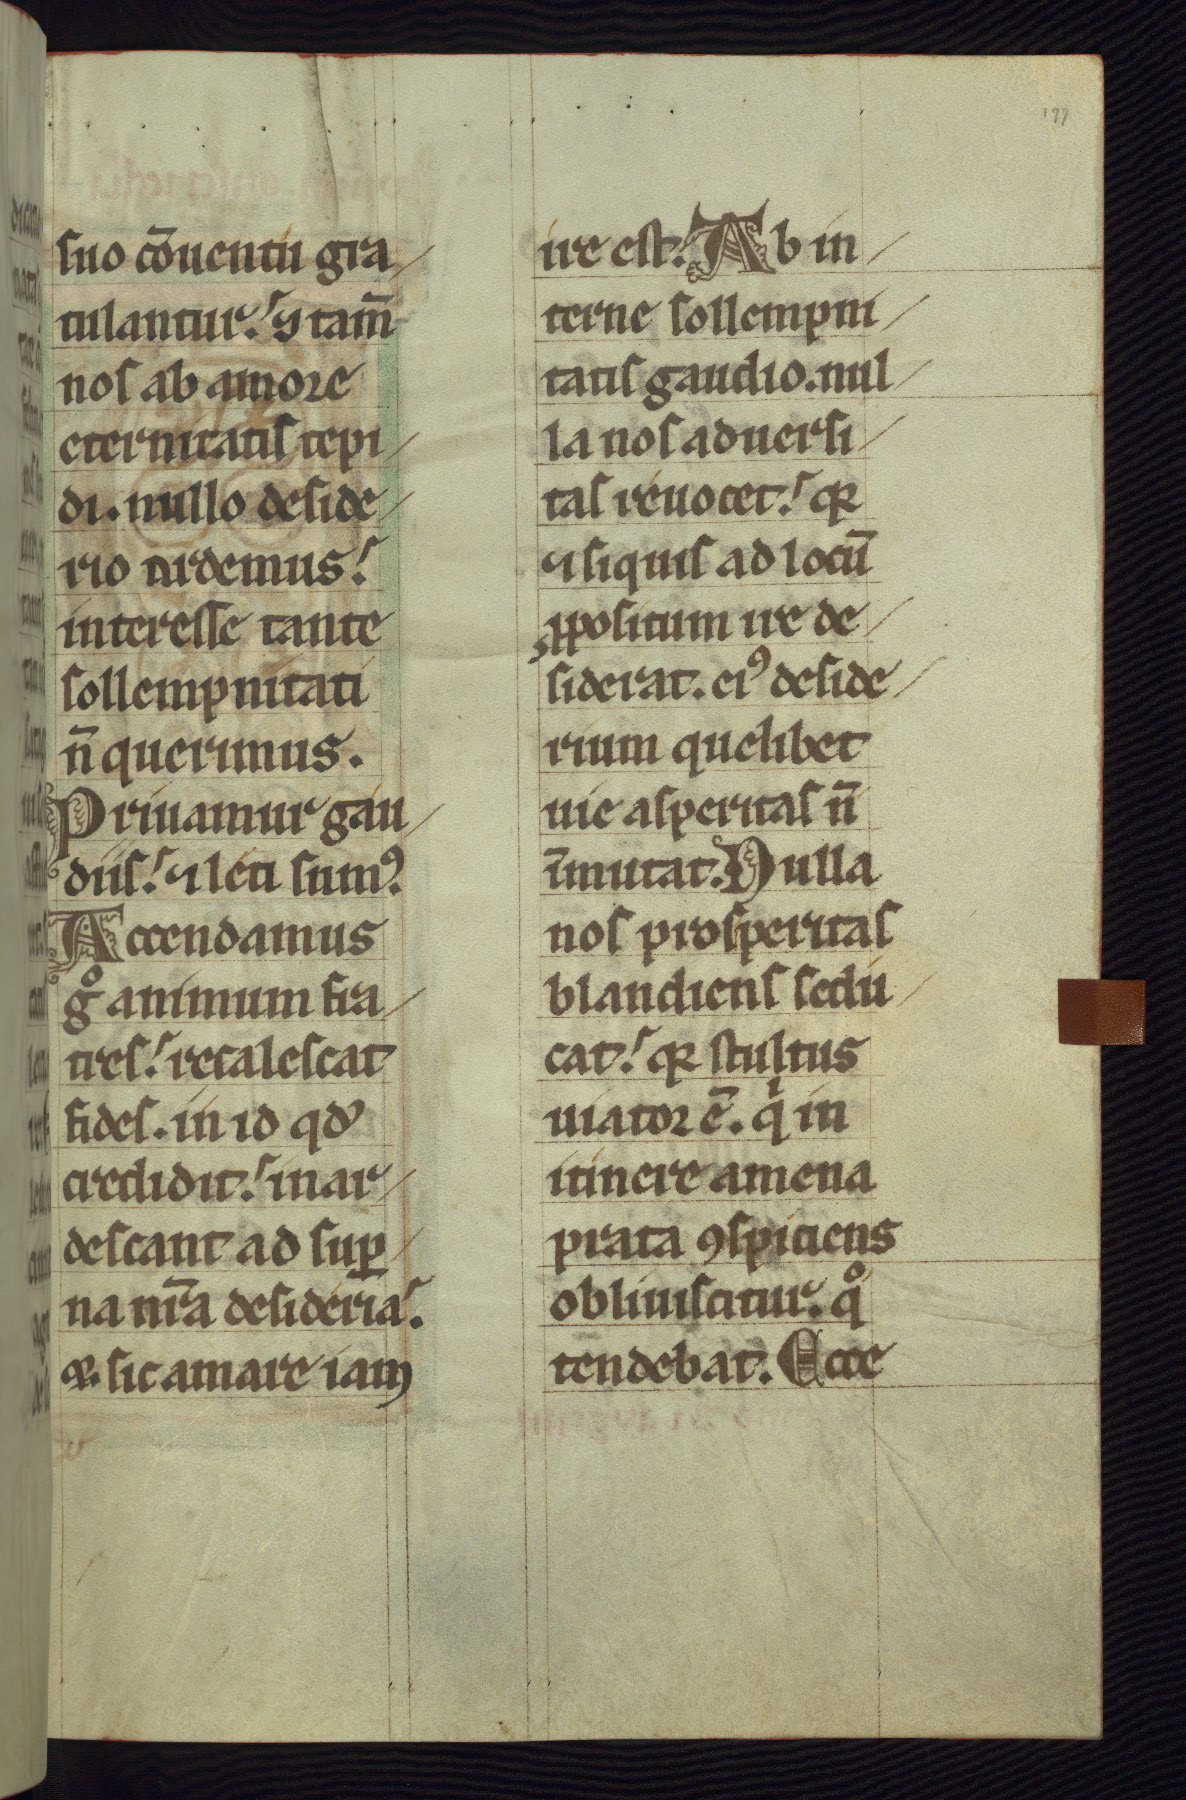 suo cōuentu gra
tulantur. ⁊ tam̄
nos ab amore
eternitatis tepi
di. nullo deside
rio ardemus.
interesse tante
sollempnitati
n̄ querimus.
Priuamur gau
diis. ⁊ leti sumꝰ.
Accendamus
gͦ animum fra
tres. recalescat
fides. in id qđ
credidit. inar
descant ad suꝑ
na nr̄a desideria.
⁊ sic amare iam
ire est. Ab in
terne sollempni
tatis gaudio. nul
la nos aduersi
tas reuocet. qꝛ
⁊ si quis ad locū
ꝓpositum ire de
siderat. eiꝰ deside
rium quelibet
uie asperitas n̄
īmutat. Nulla
nos prosperitas
blandiens sedu
cat. qꝛ stultus
uiator ē. qͥ in
itinere amena
prata ꝯspiciens
obliuiscitur. qͦ
tendebat. Ecce